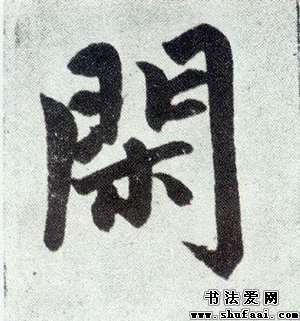 閑
书法爱网
www.shufaai.com